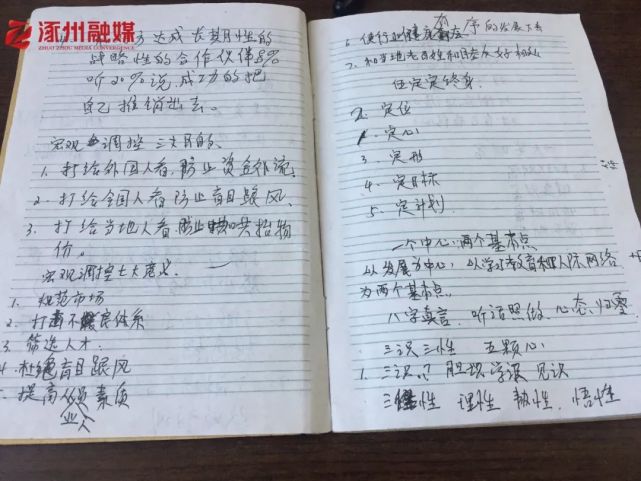 涿州融媒
ZHUOZHOU MEDIA CONVERGENCE
达成长期性的
战略性的合作伙伴87%
听20%说,成功的把
自己推销出去。
宏观调控三大目的、
1、打给外国人看,防止资金外流,
2、打给全国人看防止盲目跟风、
3、打给当地人看防止哄抬物
价。
宏观调控七大意义、
1、规范市场
2、打击不良体系
3、筛选人才
4、杜绝盲目跟风
提高从业人员素质
6、使行业健康有序的发展下去
7、和当地老百姓和民众友好相处
伍定定终身、
1、定心
2、定位
3、定形
4、定目标
5、定计划
一个中心,两个基本点
以发展为中心,以学习教育和人际网络
为两个基本点
八字真言、听话照做、心态归零
三识三性 五颗心
1、三识 胆识 学识 见识
三性 理性 韧性、悟性